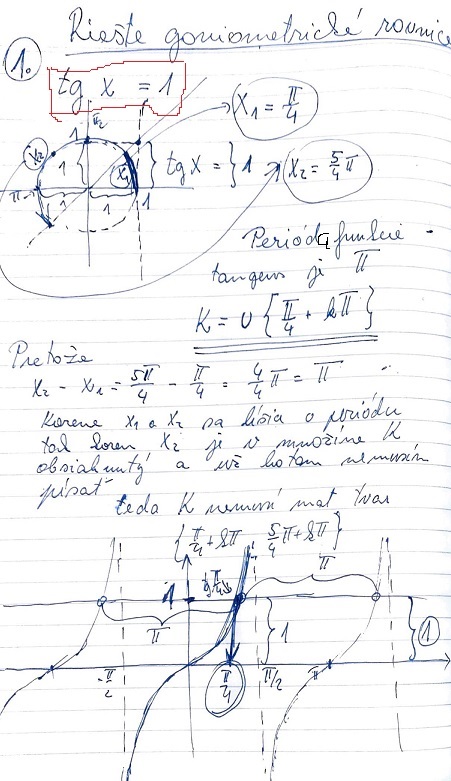 Riešte goniometrické rovnice
1.
tg x = 1
x₁ = π/4
π/2
1
x₂
1
x₁
} tg x = } 1 ⇒ x₂ = 5/4 π
π
1
1
1
Perióda funkcie
tangens je π
K = ∪ { π/4 + kπ }
Pretože
x₂ - x₁ = 5π/4 - π/4 = 4/4 π = π
Korene x₁ a x₂ sa líšia o periódu
tak koren x₂ je v množine K
obsiahnutý a už ho tam nemusím
písať
teda K nemusí mať tvar
{ π/4 + kπ 5/4 π + kπ }
1
tg π/4
π
π
1
1
-π/2
π/4
π/2
π